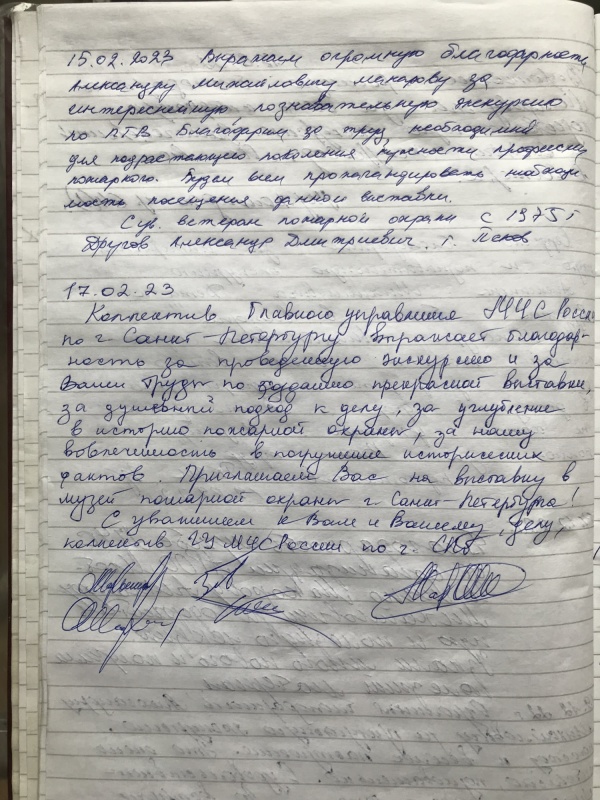 15.02.2023 Выражаем огромную благодарность
Александру Михайловичу Макарову за
интереснейшую, познавательную экскурсию
по ПТВ Благодарим за труд, необходимый
для подрастающего поколения, нужности профессии
пожаркого. Будем всем пропагандировать необходи
мость посещения данной выставки.
ветеран пожарной охраны с 1975 г
Другов Александр Дмитриевич. г. Псков
17.02.23
Коллектив Главного управления МЧС Росси
по г Санкт-Петербургу выражает благодар-
ность за проведенную экскурсию и за
Ваши труды по созданию прекрасной выставки,
за душевный подход к делу, за углубление
в историю пожарной охраны, за нашу
вовлеченность в погружение исторических
фактов. Приглашаем Вас на выставку в
музей пожарной охраны г. Санкт-Петербурга!
С уважением к Вам и Вашему делу,
коллектив ГУ МЧС России по г. СПб